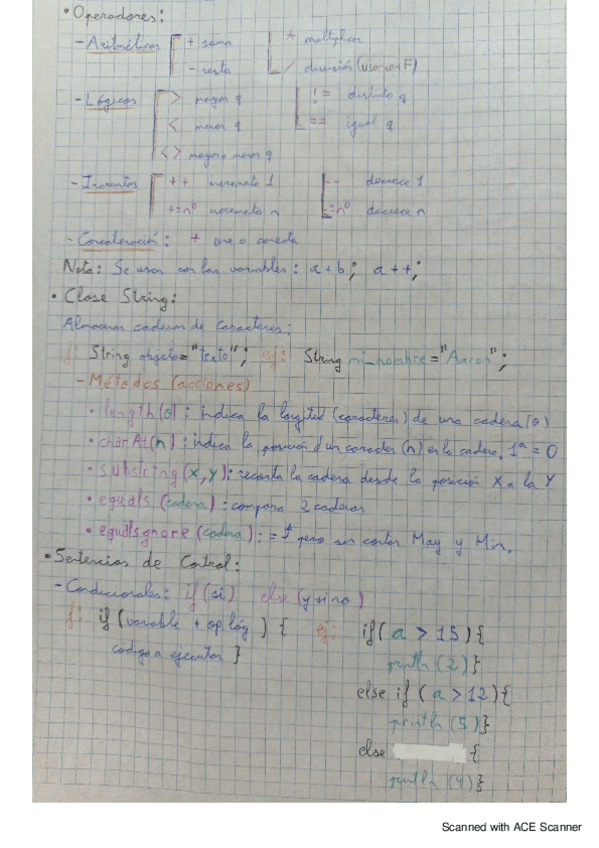 • Operadores:
- Aritméticos + suma * multiplicar
- resta / división (usar con F)
- Lógicos > mayor q != distinto q
< menor q == igual q
<> mayor o menor q
- Incrementos ++ incremento 1 -- decrece 1
+=nº incremento n -=nº decrece n
- Concatenación: + une o conecta
Nota: Se usan con las variables: a+b; a++;
• Clase String:
Almacenar cadenas de caracteres:
f: String objeto="texto"; ej: String mi_nombre="Aaron";
- Métodos (acciones)
• length(o): indica la longitud (caracteres) de una cadena (o)
• charAt(n): indica la posición d un caracter (n) en la cadena. 1ª = 0
• substring(x,y): recorta la cadena desde la posición X a la Y
• equals (cadena): compara 2 cadenas
• equalsgnore (cadena): = pero sin contar May y Min.
• Sentencias de Control:
- Condicionales: if (si) else (y si no)
f: if (variable + op.lóg ) { ej: if( a > 15){
código a ejecutar } println (2)}
else if ( a >12){
println (5)}
else {
println (4)}
Scanned with ACE Scanner